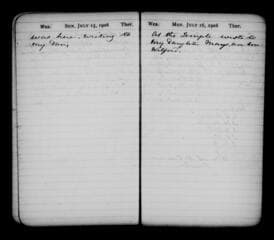 Wea. Sun. July 15, 1906 Ther.
was here. writing to
my Son,
Wea. Mon. July 16, 1906 Ther.
At the Temple wrote to
my Daughter Mary,
Wilford.